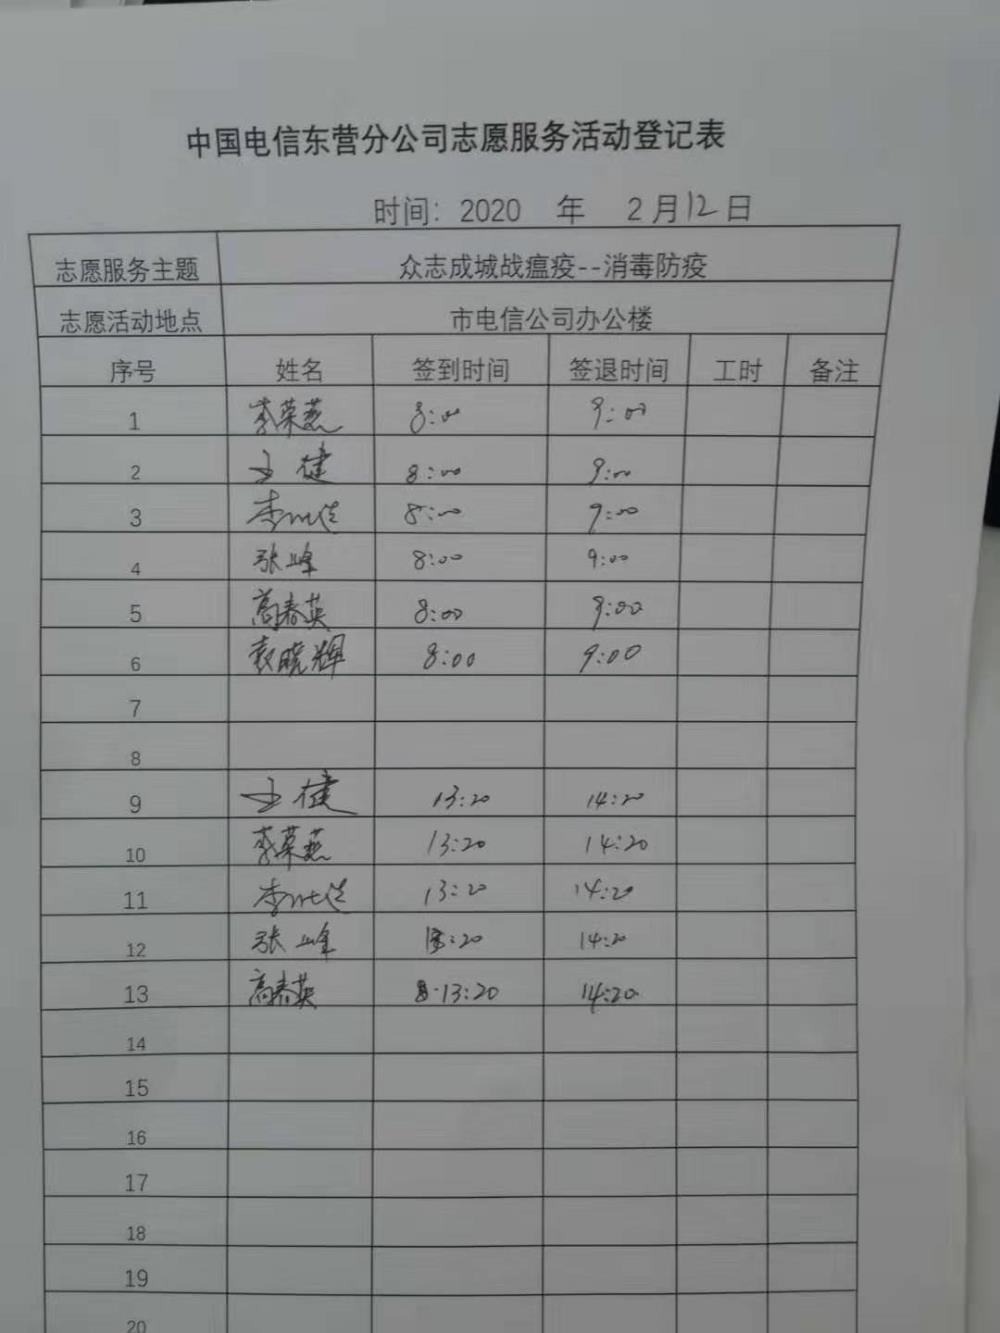 中国电信东营分公司志愿服务活动登记表
时间：2020 年 2月12日
志愿服务主题 众志成城战瘟疫--消毒防疫
志愿活动地点 市电信公司办公楼
序号 姓名 签到时间 签退时间 工时 备注
1 李荣燕 8:00 9:00
2 王健 8:00 9:00
3 李 8:00 9:00
4 张峰 8:00 9:00
5 高春英 8:00 9:00
6 袁晓辉 8:00 9:00
7
8
9 王健 13:20 14:20
10 李荣燕 13:20 14:20
11 李 13:20 14:20
12 张峰 13:20 14:20
13 高春英 13:20 14:20
14
15
16
17
18
19
20